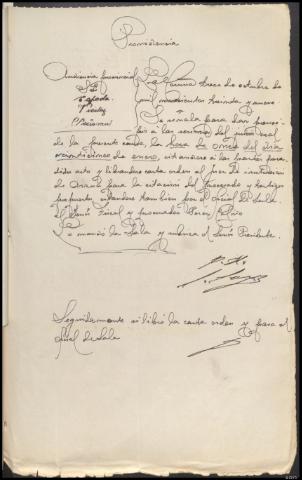 Providencia
Audiencia provincial La Coruña trece de octubre de
mil novecientos treinta y nueve
Se señala para dar
a las sesiones del juicio oral
de la presente causa, la hora de once del día
veinticinco de enero, citándose a las partes para
dicho acto y librándose carta orden al Juez de instrucción
de para la citación del procesado y testigos
propuestos, citándose también por el oficial de Sala
al Señor Fiscal y procurador Pérez
Lo mandó la Sala y rubrica el Señor Presidente
Seguidamente se libró la carta orden y pasa al
oficial de Sala